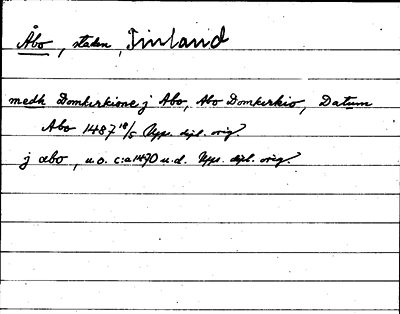 Åbo, staden, Finland
medh Domkirkione j Abo, Abo Domkirkio, Datum
Abo 1487 18/5 Upps. dipl. orig.
j abo, u.o. c:a 1490 u.d. Upps. dipl. orig.